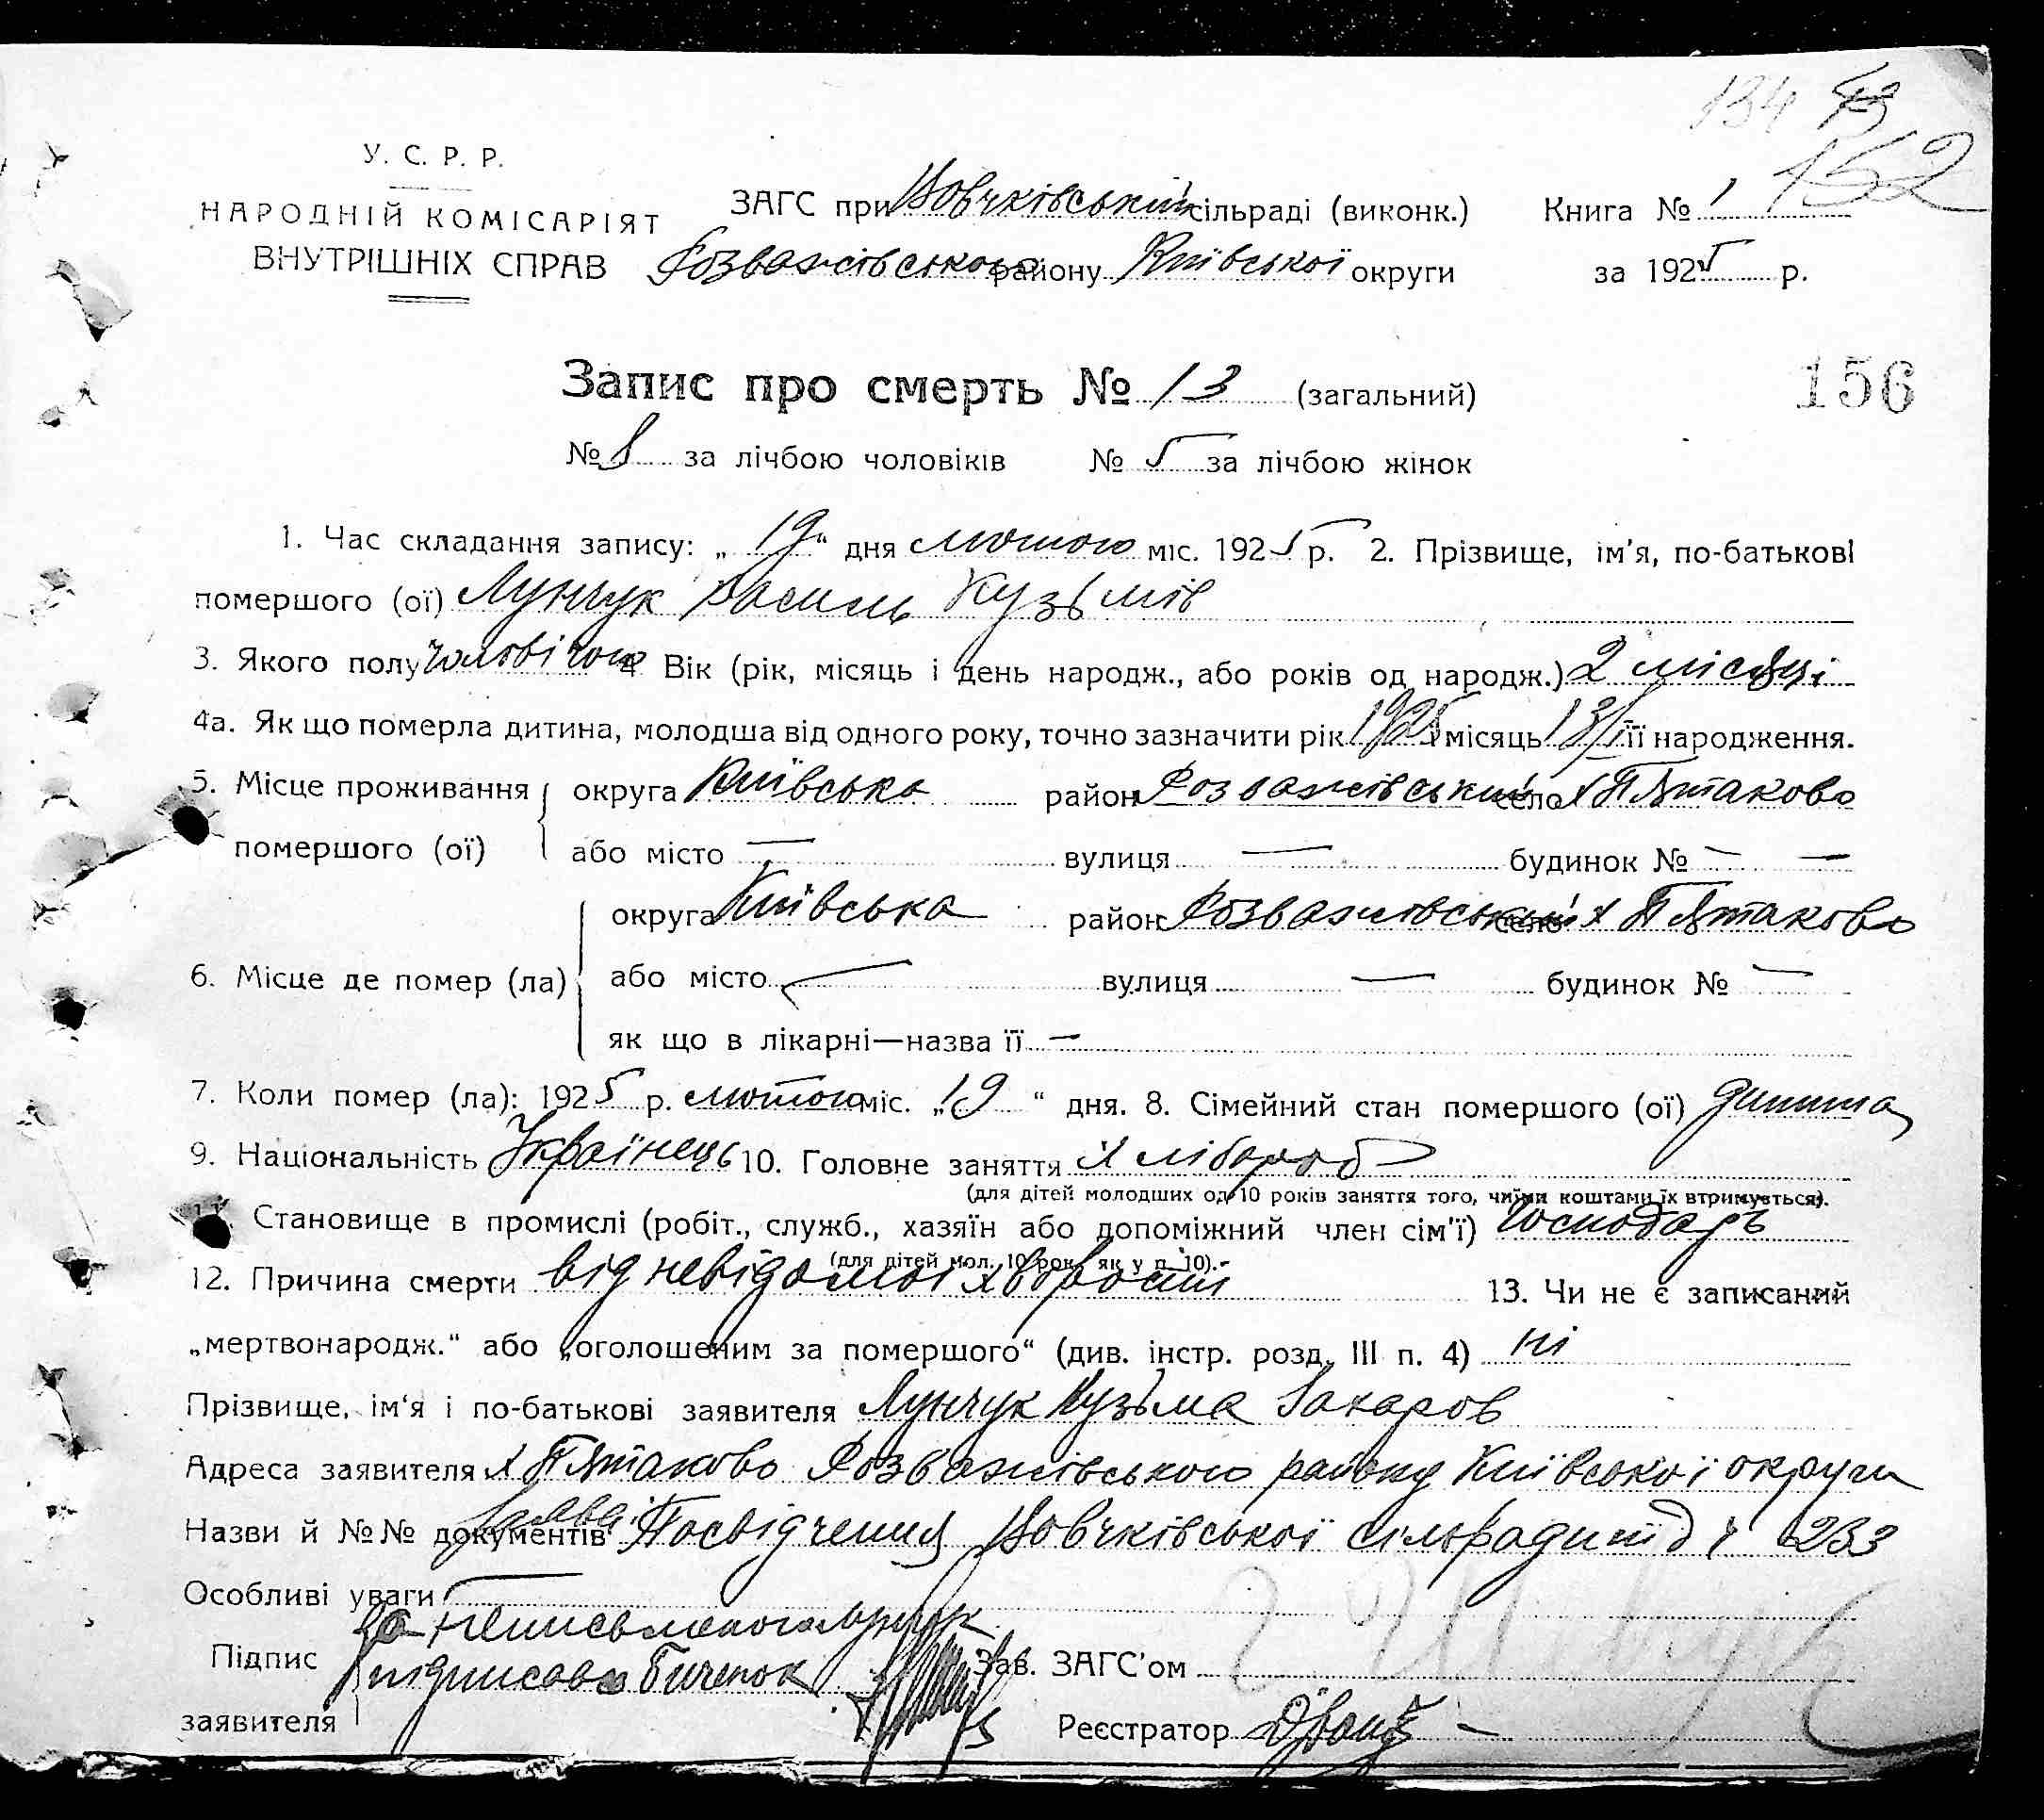 134
152
У. С. Р. Р.
НАРОДНІЙ КОМІСАРІЯТ
ВНУТРІШНІХ СПРАВ
ЗАГС при Вовчківський сільраді (виконк.) Книга № 1
Розважівського району Київської округи за 1925 р.
Запис про смерть № 13 (загальний)
156
№ 8 за лічбою чоловіків № 5 за лічбою жінок
1. Час складання запису: „ 19 “ дня лютого міс. 1925 р. 2. Прізвище, ім'я, по-батькові
помершого (ої) Лунчук Василь Кузьмів
3. Якого полу чоловічого 4 Вік (рік, місяць і день народж., або років од народж.) 2 місяці
4а. Як що померла дитина, молодша від одного року, точно зазначити рік 1925 і місяць 13/I її народження.
5. Місце проживання округа Київська район Розважівський село х Пятаково
помершого (ої) або місто — вулиця — будинок № — —
округа Київська район Розважівський село х Пятаково
6. Місце де помер (ла) або місто — вулиця — будинок № —
як що в лікарні—назва її —
7. Коли помер (ла): 1925 р. лютого міс. „ 19 “ дня. 8. Сімейний стан помершого (ої) дитина
9. Національність Українець 10. Головне заняття хлібороб
(для дітей молодших од 10 років заняття того, чиїми коштами їх втримується).
Становище в промислі (робіт., служб., хазяїн або допоміжний член сім'ї) Господарь
(для дітей мол. 10 рок. як у п. 10).
12. Причина смерти від невідомої хвороти 13. Чи не є записаний
„мертвонародж.“ або „оголошеним за помершого“ (див. інстр. розд. III п. 4) ні
Прізвище, ім'я і по-батькові заявителя Лунчук Кузьма Захаров
Адреса заявителя х Пятаково Розважівського району Київської округи
Назви й №№ документів Посвідчення Вовчківської сільради 233
Особливі уваги —
За неписьменого Лунчук
Підпис підписав Зав. ЗАГС'ом
заявителя Реєстратор